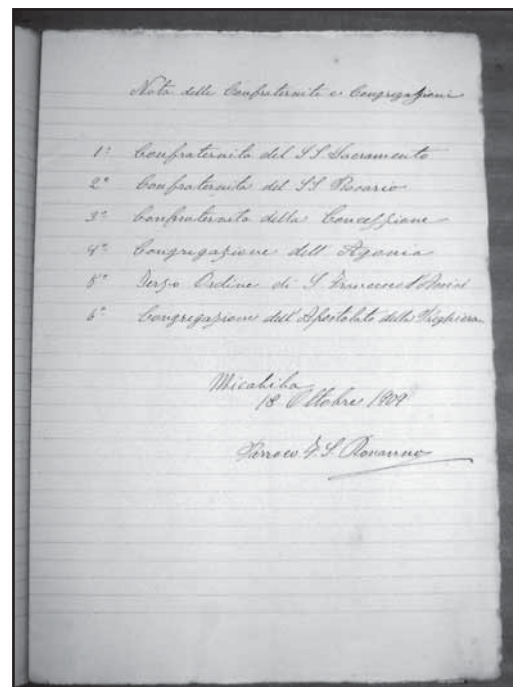 Nota delle Confraternite e Congregazioni
1º Confraternita del SS Sacramento
2º Confraternita del SS Rosario
3º Confraternita della Concezzione
4º Congregazione dell'Agonia
5º Terzo Ordine di S Francesco d'Assisi
6º Congregazione dell'Apostolato della Preghiera
Micabiba
18 Ottobre 1909
Parroco F. S.